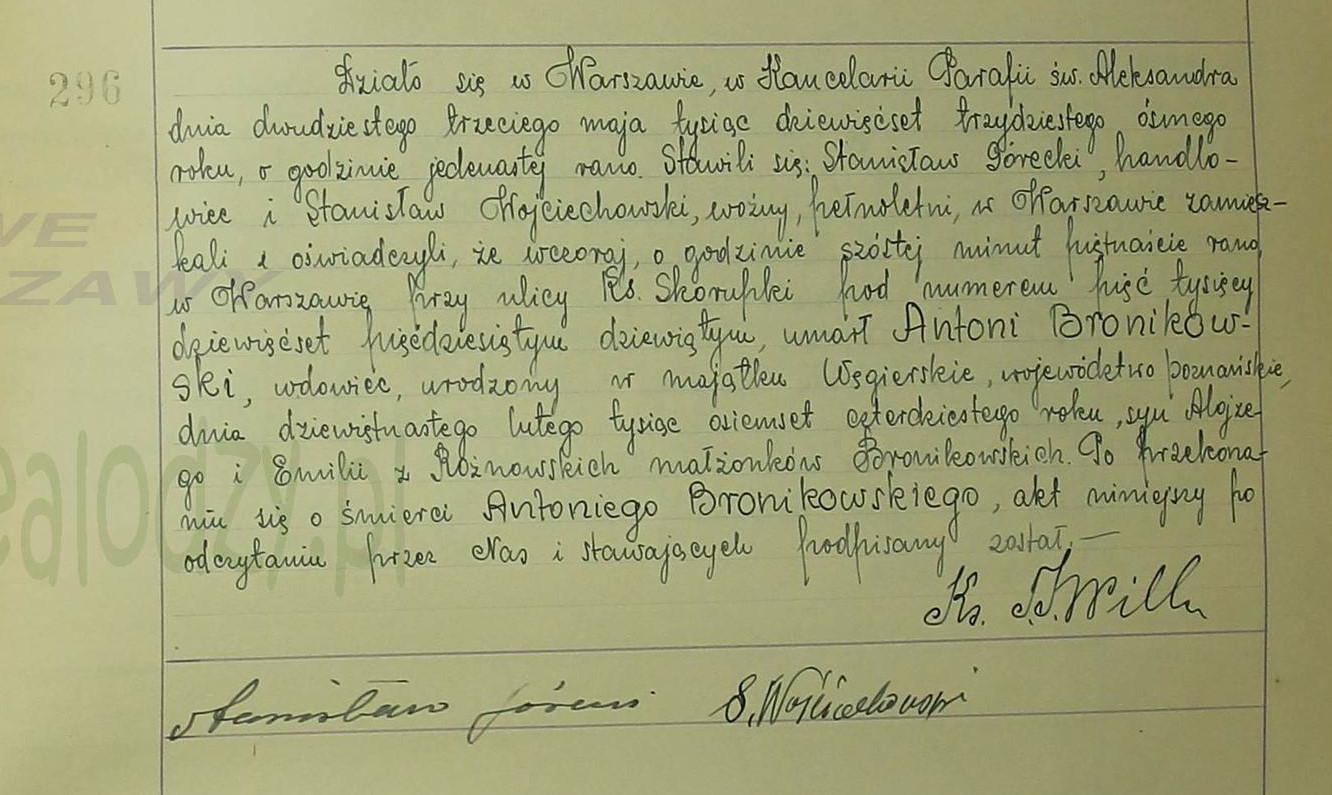 296
Działo się w Warszawie, w Kancelarii Parafii św. Aleksandra
dnia dwudziestego trzeciego maja tysiąc dziewięćset trzydziestego ósmego
roku, o godzinie jedenastej rano. Stawili się: Stanisław Górecki, handlo-
wiec i Stanisław Wojciechowski, woźny, pełnoletni, w Warszawie zamiesz-
kali i oświadczyli, że wczoraj, o godzinie szóstej minut piętnaście rano,
w Warszawie przy ulicy Ks. Skorupki pod numerem pięć tysięcy
dziewięćset pięćdziesiątym dziewiątym, umarł Antoni Bronikow-
ski, wdowiec, urodzony w majątku Węgierskie, województwo poznańskie,
dnia dziewiętnastego lutego tysiąc osiemset czterdziestego roku, syn Alojze-
go i Emilii z Rożnowskich małżonków Bronikowskich. Po przekona-
niu się o śmierci Antoniego Bronikowskiego, akt niniejszy po
odczytaniu przez Nas i stawających podpisany został.—
Ks.
Stanisław S. Wojciechowski
WE
ZAWY
ealodzy.pl